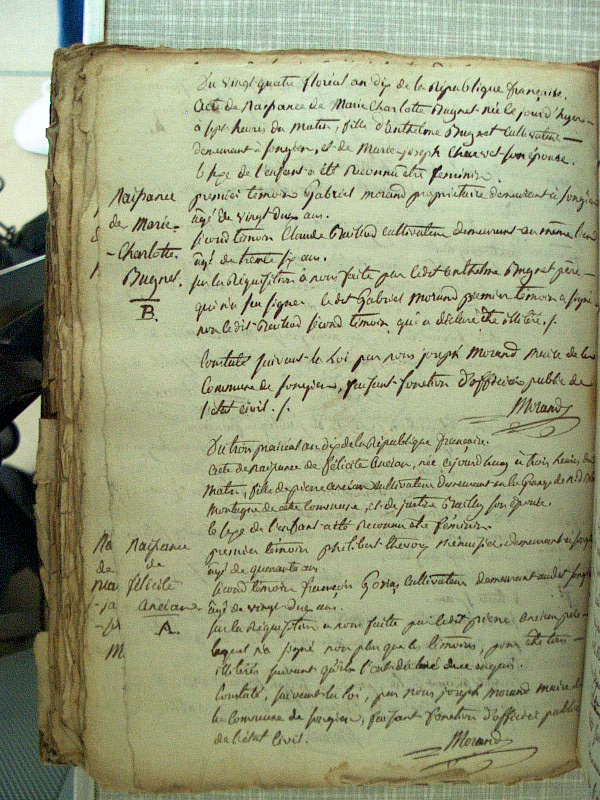 Du vingt quatre floréal an dix de la République française.
Acte de Naissance de Marie Charlotte Bugnet née le jour d'hyer
à sept heures du Matin, fille d'Anthelme Bugnet Cultivateur
demeurant à Songieu, et de Marie-joseph Charvet son épouse.
le sexe de l'enfant a été reconnu être féminin.
Naissance
de Marie-
-Charlotte
Bugnet.
B.
premier témoin Gabriel Morand propriétaire demeurant à Songieu
âgé de vingt deux ans.
second témoin Claude Baillod cultivateur demeurant au même lieu
âgé de trente six ans.
sur la Réquisition à nous faite par ledit Anthelme Bugnet père
qui n'a su signer ledit Gabriel Morand premier témoin a signé
non ledit Baillod second témoin, qui a déclaré être illitéré ./.
Constaté suivant la Loi par nous joseph Morand Maire de la
Commune de Songieu, faisant fonction d'officier public de
l'état civil ./.
Morand
Du trois prairial an dix de la République française.
Acte de Naissance de félicité Ancian, née cejourd'huy à trois heures du
Matin, fille de pierre Ancian cultivateur demeurant en la Grange de
Montagne de cette Commune, et de justine Bailly son épouse.
le sexe de l'enfant a été reconnu être féminin.
Naissance
de
félicité
Anciane
A.
premier témoin philibert thevoz Menuisier, demeurant à Songieu
âgé de quarante ans
second témoin françois Cultivateur demeurant audit Songieu
âgé de vingt deux ans.
sur la Réquisition a nous faite par ledit pierre Ancian père
lequel n'a signé non plus que les témoins, pour être tous
illitérés suivant qu'ils l'ont déclaré
Constaté, suivant la loi, par nous joseph Morand maire de
la Commune de Songieu, faisant fonction d'officier public
de l'état civil.
Morand